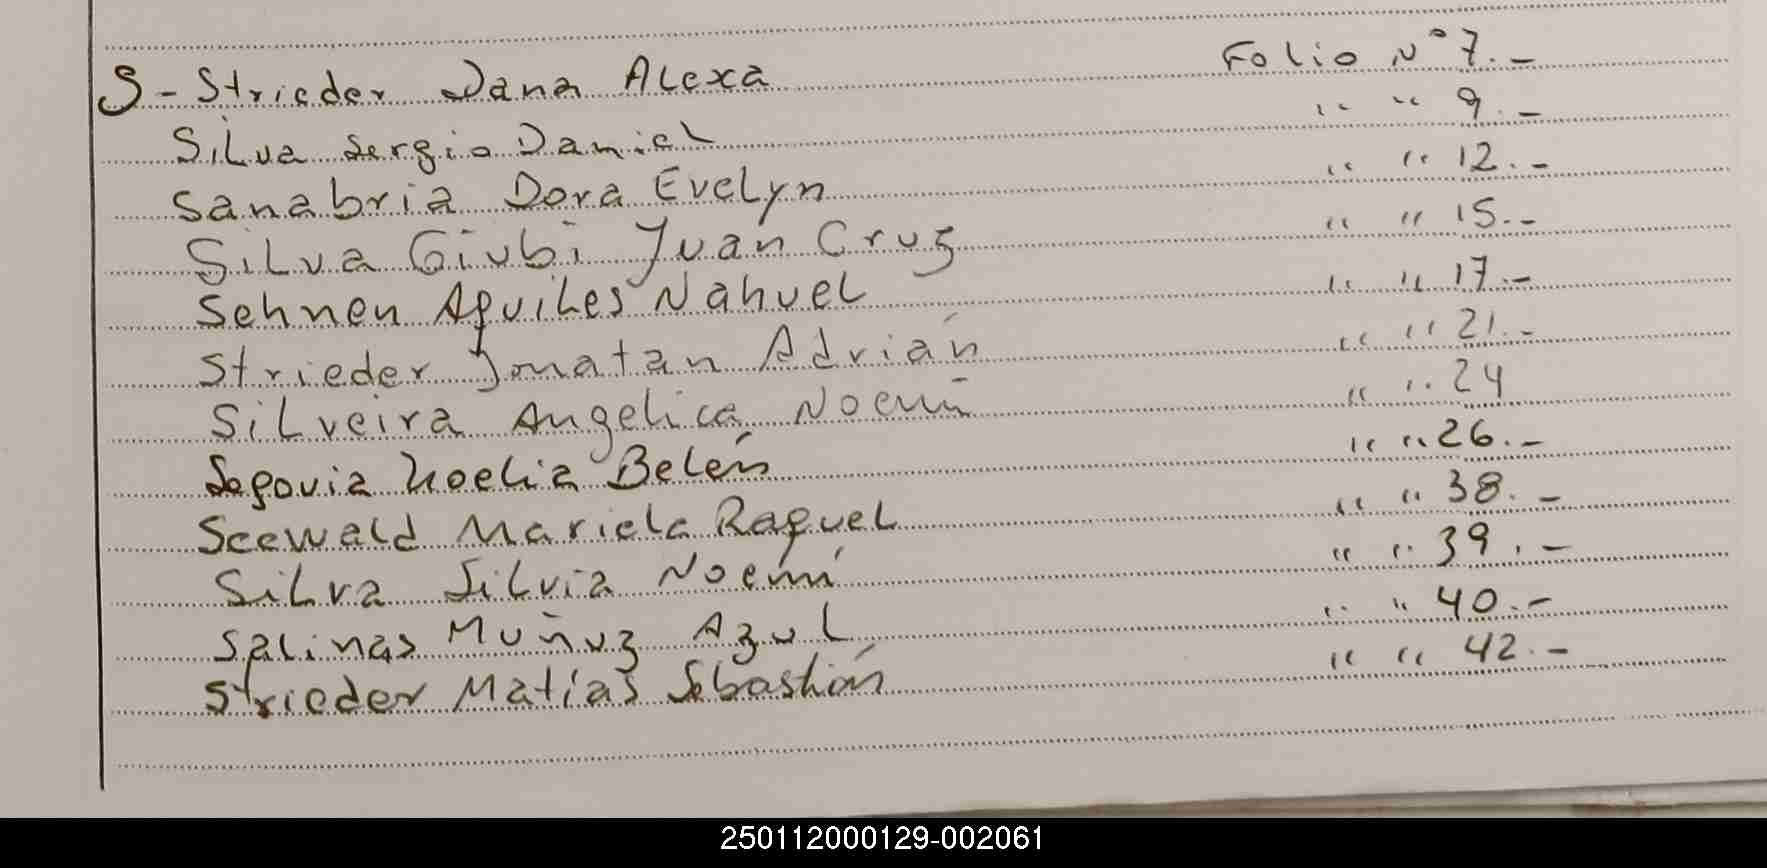 S - Strieder Dana Alexa Folio N° 7.-
Silva Sergio Daniel " " 9.-
Sanabria Dora Evelyn " " 12.-
Silva Giubi Juan Cruz " " 15.-
Sehnen Aquiles Nahuel " " 17.-
Strieder Jonatan Adrián " " 21.-
Silveira Angelica Noemí " " 24
Segovia Noelia Belén " " 26.-
Seewald Mariela Raquel " " 38.-
Silva Silvia Noemí " " 39.-
Salinas Muñuz Azul " " 40.-
Strieder Matías Sebastián " " 42.-
250112000129-002061